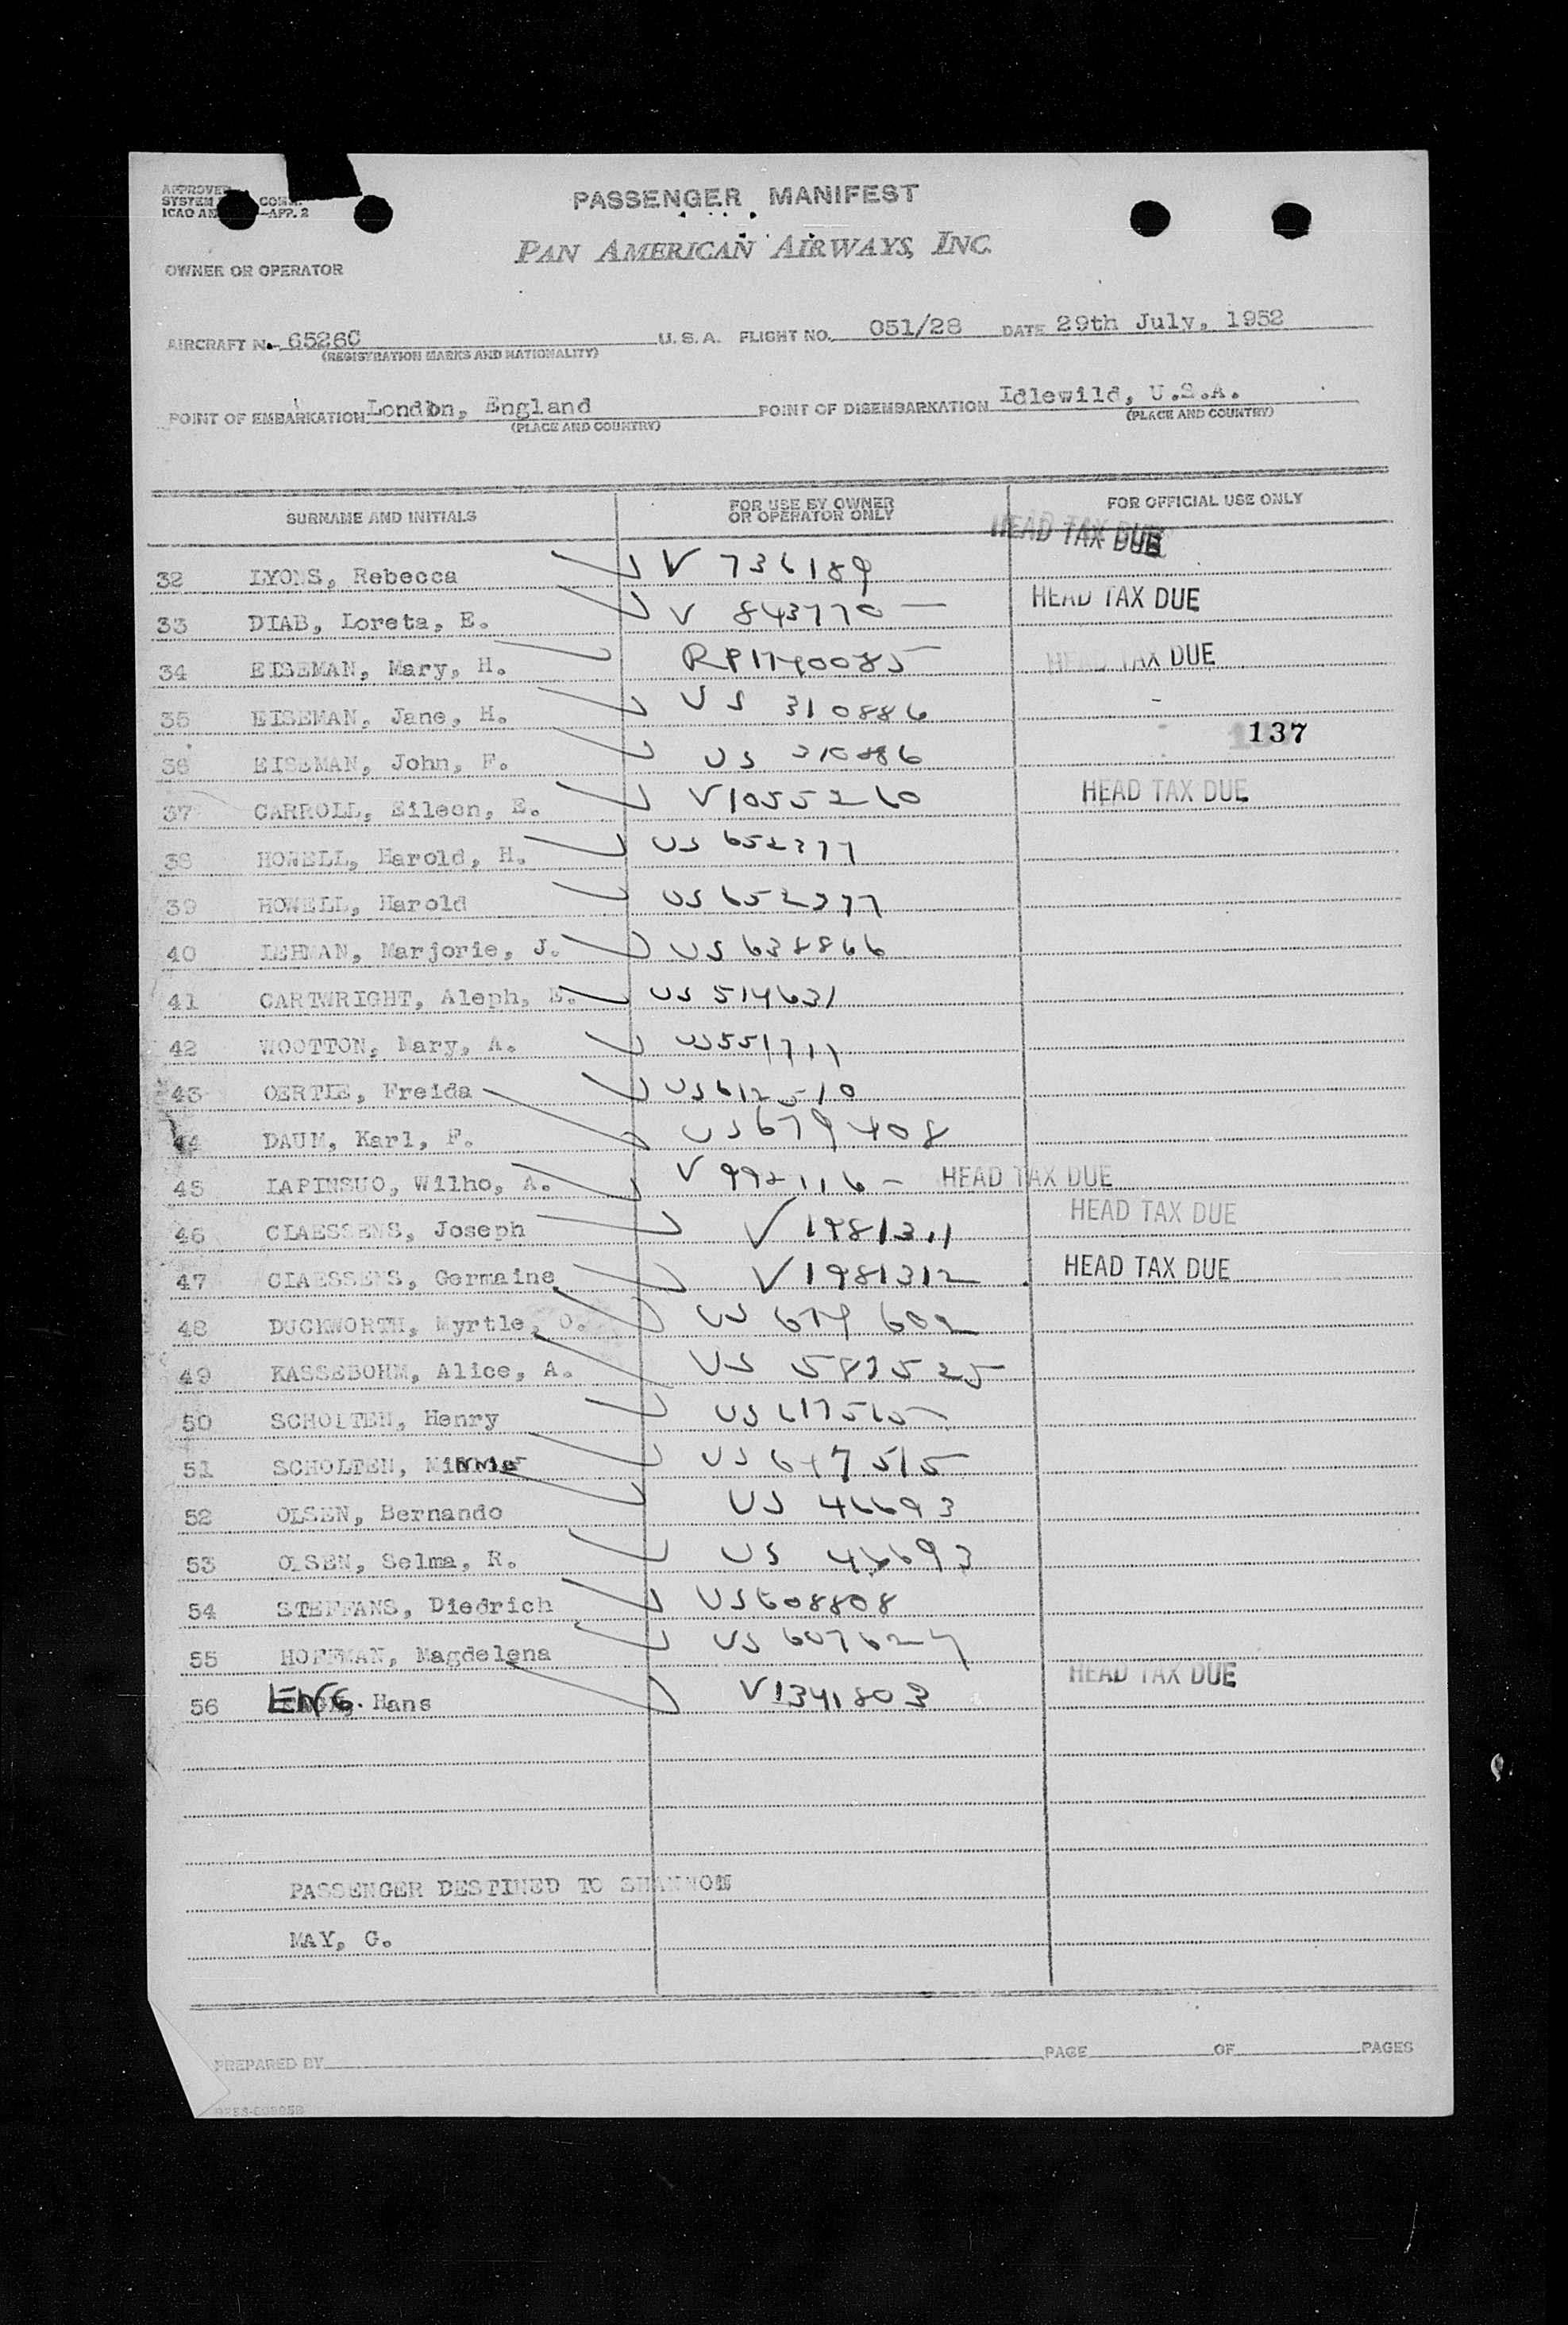 APPROVED
SYSTEM COMM.
ICAO AN —APP. 2
PASSENGER MANIFEST
PAN AMERICAN AIRWAYS, INC.
OWNER OR OPERATOR
AIRCRAFT No. 6526C U.S.A. FLIGHT NO. 051/28 DATE 29th July, 1952
(REGISTRATION MARKS AND NATIONALITY)
POINT OF EMBARKATION London, England POINT OF DISEMBARKATION Idlewild, U.S.A.
(PLACE AND COUNTRY) (PLACE AND COUNTRY)
SURNAME AND INITIALS FOR USE BY OWNER OR OPERATOR ONLY FOR OFFICIAL USE ONLY
HEAD TAX DUE
32 LYONS, Rebecca V 736189
33 DIAB, Loreta, E. V 843770 — HEAD TAX DUE
34 EISEMAN, Mary, H. RP1740085 HEAD TAX DUE
35 EISEMAN, Jane, H. US 310886
137
36 EISEMAN, John, F. US 310886
37 CARROLL, Eileen, E. V1055260 HEAD TAX DUE
38 HOWELL, Harold, H. US 652377
39 HOWELL, Harold US 652377
40 LEHMAN, Marjorie, J. US 638866
41 CARTWRIGHT, Aleph, E. US 514631
42 WOOTTON, Mary, A. US551711
43 OERTLE, Freida US612510
44 DAUM, Karl, F. US679408
45 LAPINSUO, Wilho, A. V 992116 — HEAD TAX DUE
46 CLAESSENS, Joseph V 1981311 HEAD TAX DUE
47 CLAESSENS, Germaine V1981312 HEAD TAX DUE
48 DUCKWORTH, Myrtle, O. US 679 602
49 KASSEBOHM, Alice, A. US 583525
50 SCHOLTEN, Henry US
51 SCHOLTEN, US 647515
52 OLSEN, Bernando US 46693
53 OLSEN, Selma, R. US 46693
54 STEFFANS, Diedrich US608808
55 HOFFMAN, Magdelena US 607627
HEAD TAX DUE
56 ENG. Hans V1341803
PASSENGER DESTINED TO SHANNON
MAY, G.
PREPARED BY PAGE OF PAGES